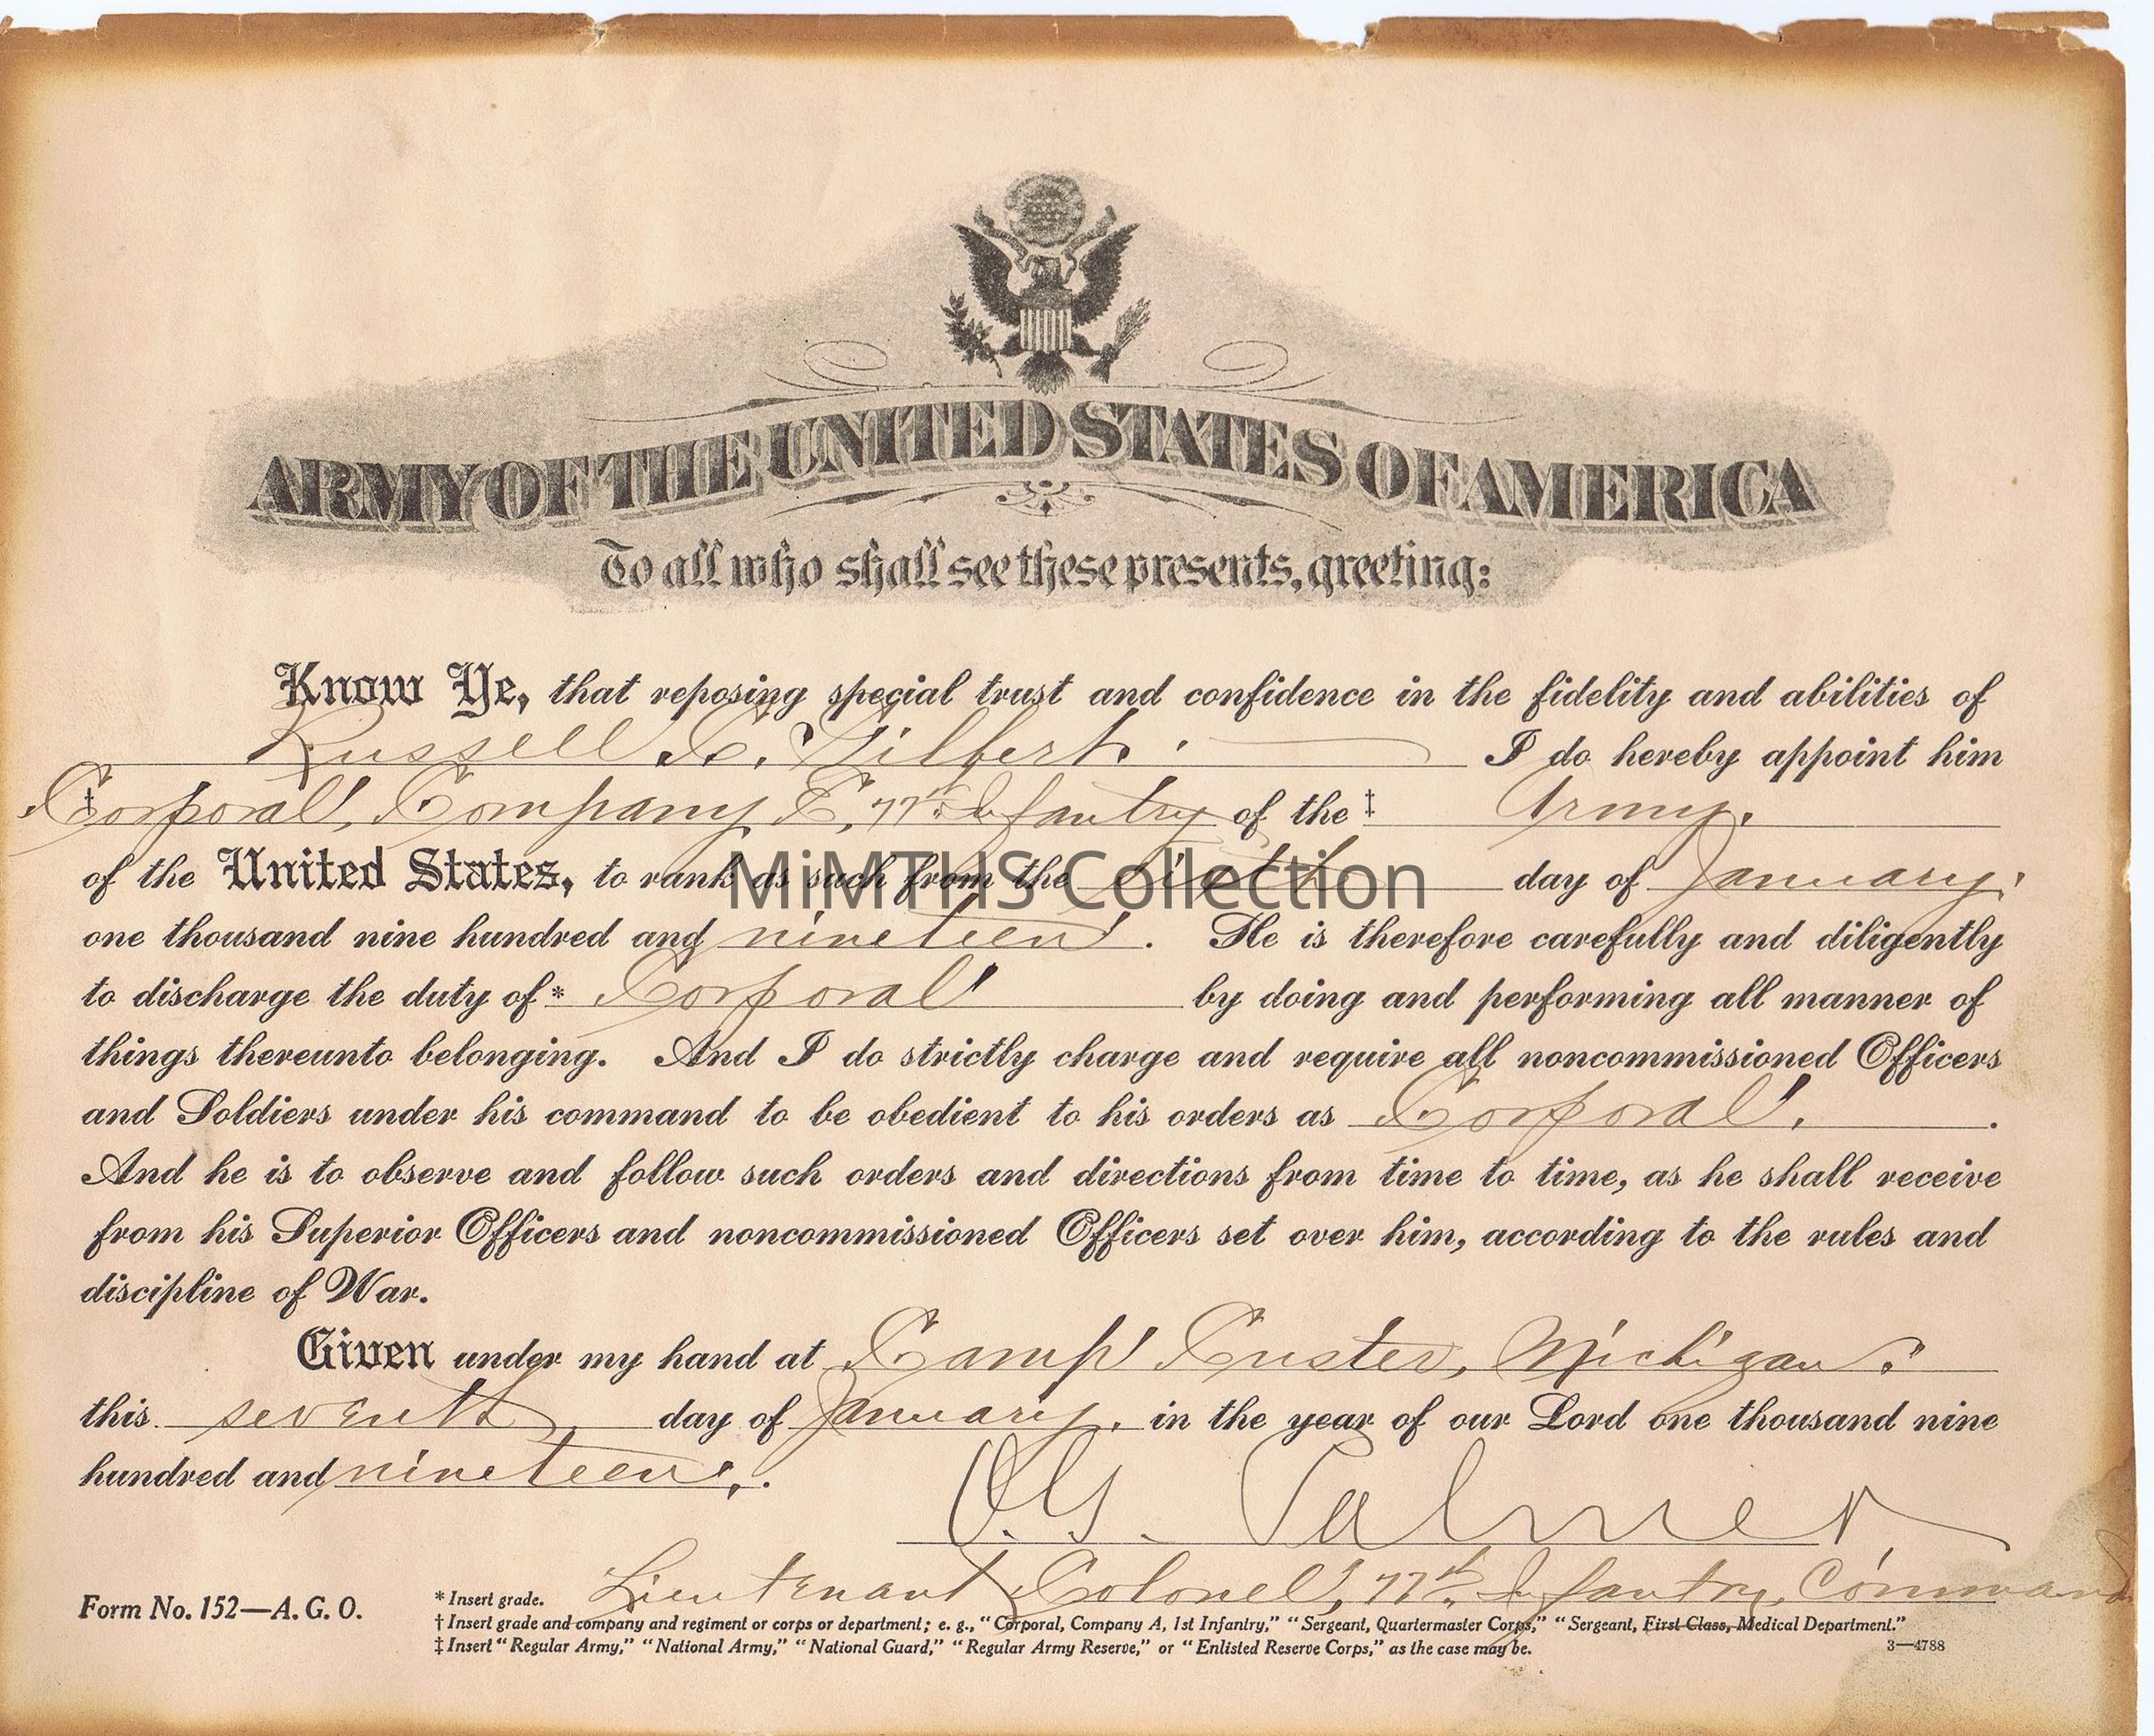 ARMY OF THE UNITED STATES OF AMERICA
To all who shall see these presents, greeting:
Know Ye, that reposing special trust and confidence in the fidelity and abilities of
Russell C. Gilbert. I do hereby appoint him
† Corporal, Company E, 77th Infantry of the ‡ Army.
of the United States, to rank as such from the sixth day of January,
MiMTHS Collection
one thousand nine hundred and nineteen. He is therefore carefully and diligently
to discharge the duty of * Corporal by doing and performing all manner of
things thereunto belonging. And I do strictly charge and require all noncommissioned Officers
and Soldiers under his command to be obedient to his orders as Corporal.
And he is to observe and follow such orders and directions from time to time, as he shall receive
from his Superior Officers and noncommissioned Officers set over him, according to the rules and
discipline of War.
Given under my hand at Camp Custer, Michigan.
this seventh day of January, in the year of our Lord one thousand nine
hundred and nineteen.
Palmer
Lieutenant Colonel, 77th Infantry, Command
Form No. 152—A. G. O.
* Insert grade.
† Insert grade and company and regiment or corps or department; e. g., "Corporal, Company A, 1st Infantry," "Sergeant, Quartermaster Corps," "Sergeant, First Class, Medical Department."
‡ Insert "Regular Army," "National Army," "National Guard," "Regular Army Reserve," or "Enlisted Reserve Corps," as the case may be.
3—4788